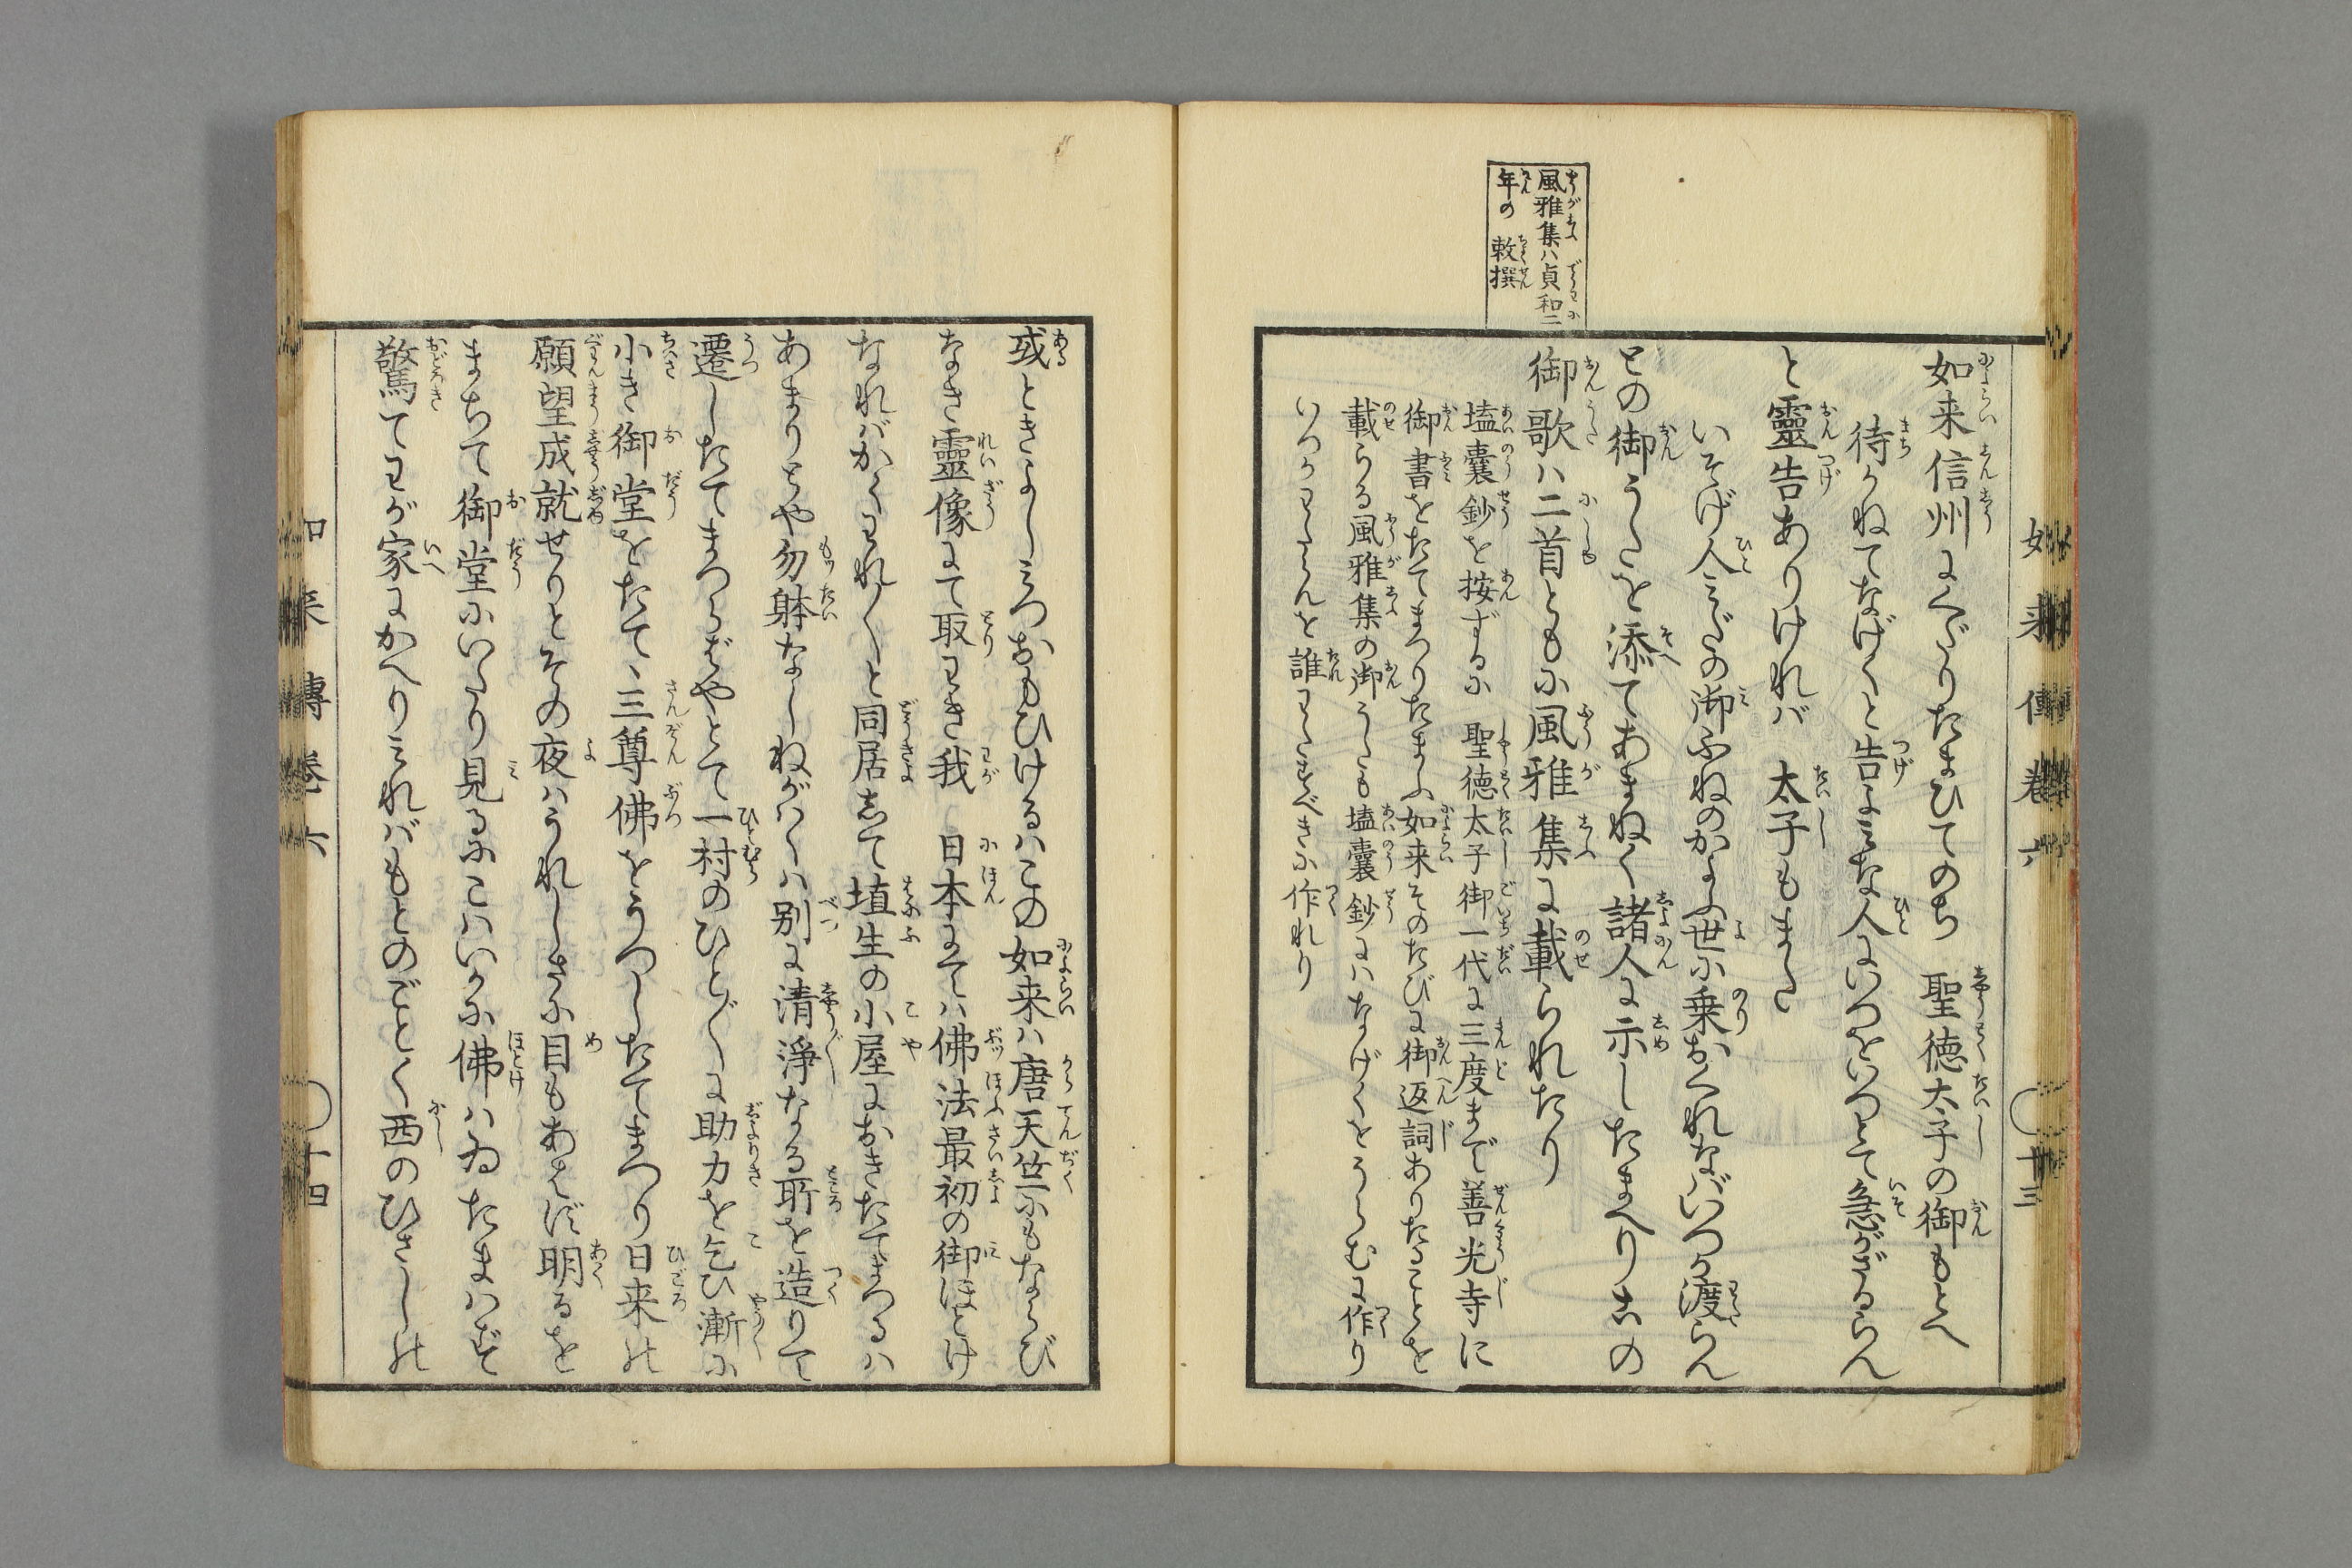 風雅集ハ貞和二
年の　敕撰
如来信州にくだりたまひてのち　聖徳太子の御もとへ
待かねてなげくと告よみな人にいつをいつとて急がざるらん
と靈告ありけれバ　太子もまた
いそげ人みだの御ふねのかよふ世に乗おくれなバいつか渡らん
との御うたを添てあまねく諸人に示したまへりこの
御歌ハ二首ともに風雅集に載られたり
壒嚢鈔を按ずるに　聖徳太子御一代に三度まで善光寺に
御書をたてまつりたまふ如来そのたびに御返詞ありたることを
載らる風雅集の御うたも壒嚢鈔にハなげくをうらむに作り
いつかわたらんを誰わたすべきに作れり
如来傳卷六　十三
或ときよしみつおもひけるハこの如来ハ唐天竺にもならび
なき靈像にて取わき我　日本にてハ佛法最初の御ほとけ
なれバかくわれ〳〵と同居して埴生の小屋におきたてまつるハ
あまりとや勿躰なしねがハくハ別に清浄なる所を造りて
遷したてまつらばやとて一村のひと〴〵に助力を乞ひ漸に
小き御堂をたて、三尊佛をうつしたてまつり日来の
願望成就せりとその夜ハうれしさに目もあはず明るを
まちて御堂にいたり見るにこハいかに佛ハゐたまハず
驚てわが家にかへりみれバもとのごとく西のひさしの
如来傳卷六　十四